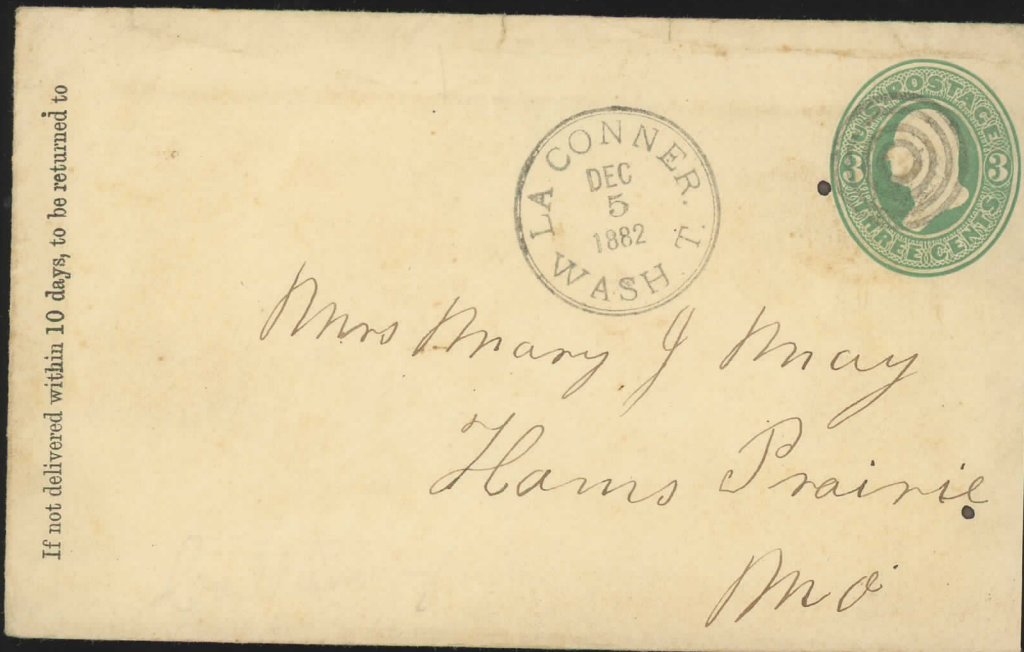 If not delivered within 10 days, to be returned to
LA CONNER.
WASH. T.
DEC
5
1882
U.S. POSTAGE
3 3
THREE CENTS
Mrs Mary J May
Hams Prairie
Mo